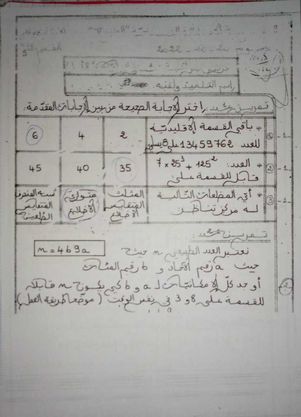 2022
إسم التلميذ ولقبه
تمرين عـدد: اختر الإجابة الصحيحة من بين الإجابات المقدمة.
* باقي القسمة الإقليدية للعدد 13459762 على 8 يساوي
2
4
6
* العدد 7 × 25³ + 125² قابل للقسمة على
35
40
45
* أي المضلعات التالية له مركز تناظر
المثلث المتقايس الأضلاع
متوازي الأضلاع
شبه المنحرف المتقايس الضلعين
تمرين عـدد
نعتبر العدد الطبيعي n حيث
n = 4b9a
حيث a رقم الآحاد و b رقم المئات
أوجد كل الإمكانيات لـ a و b لكي يكون n قابلا
للقسمة على 8 و 3 في نفس الوقت (موضحا طريقة العمل).